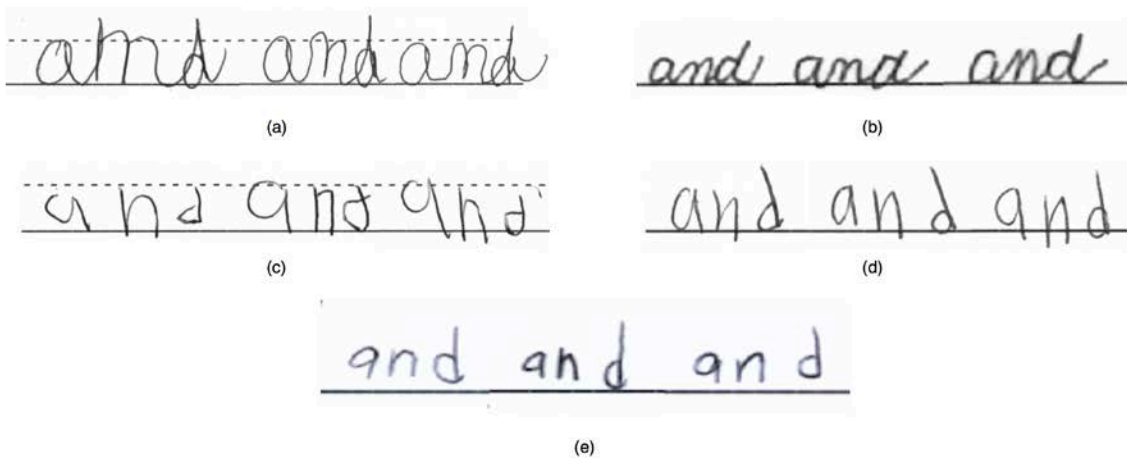 and and and
and and and
(a)
(b)
and and and
and and and
(c)
(d)
and and and
(e)